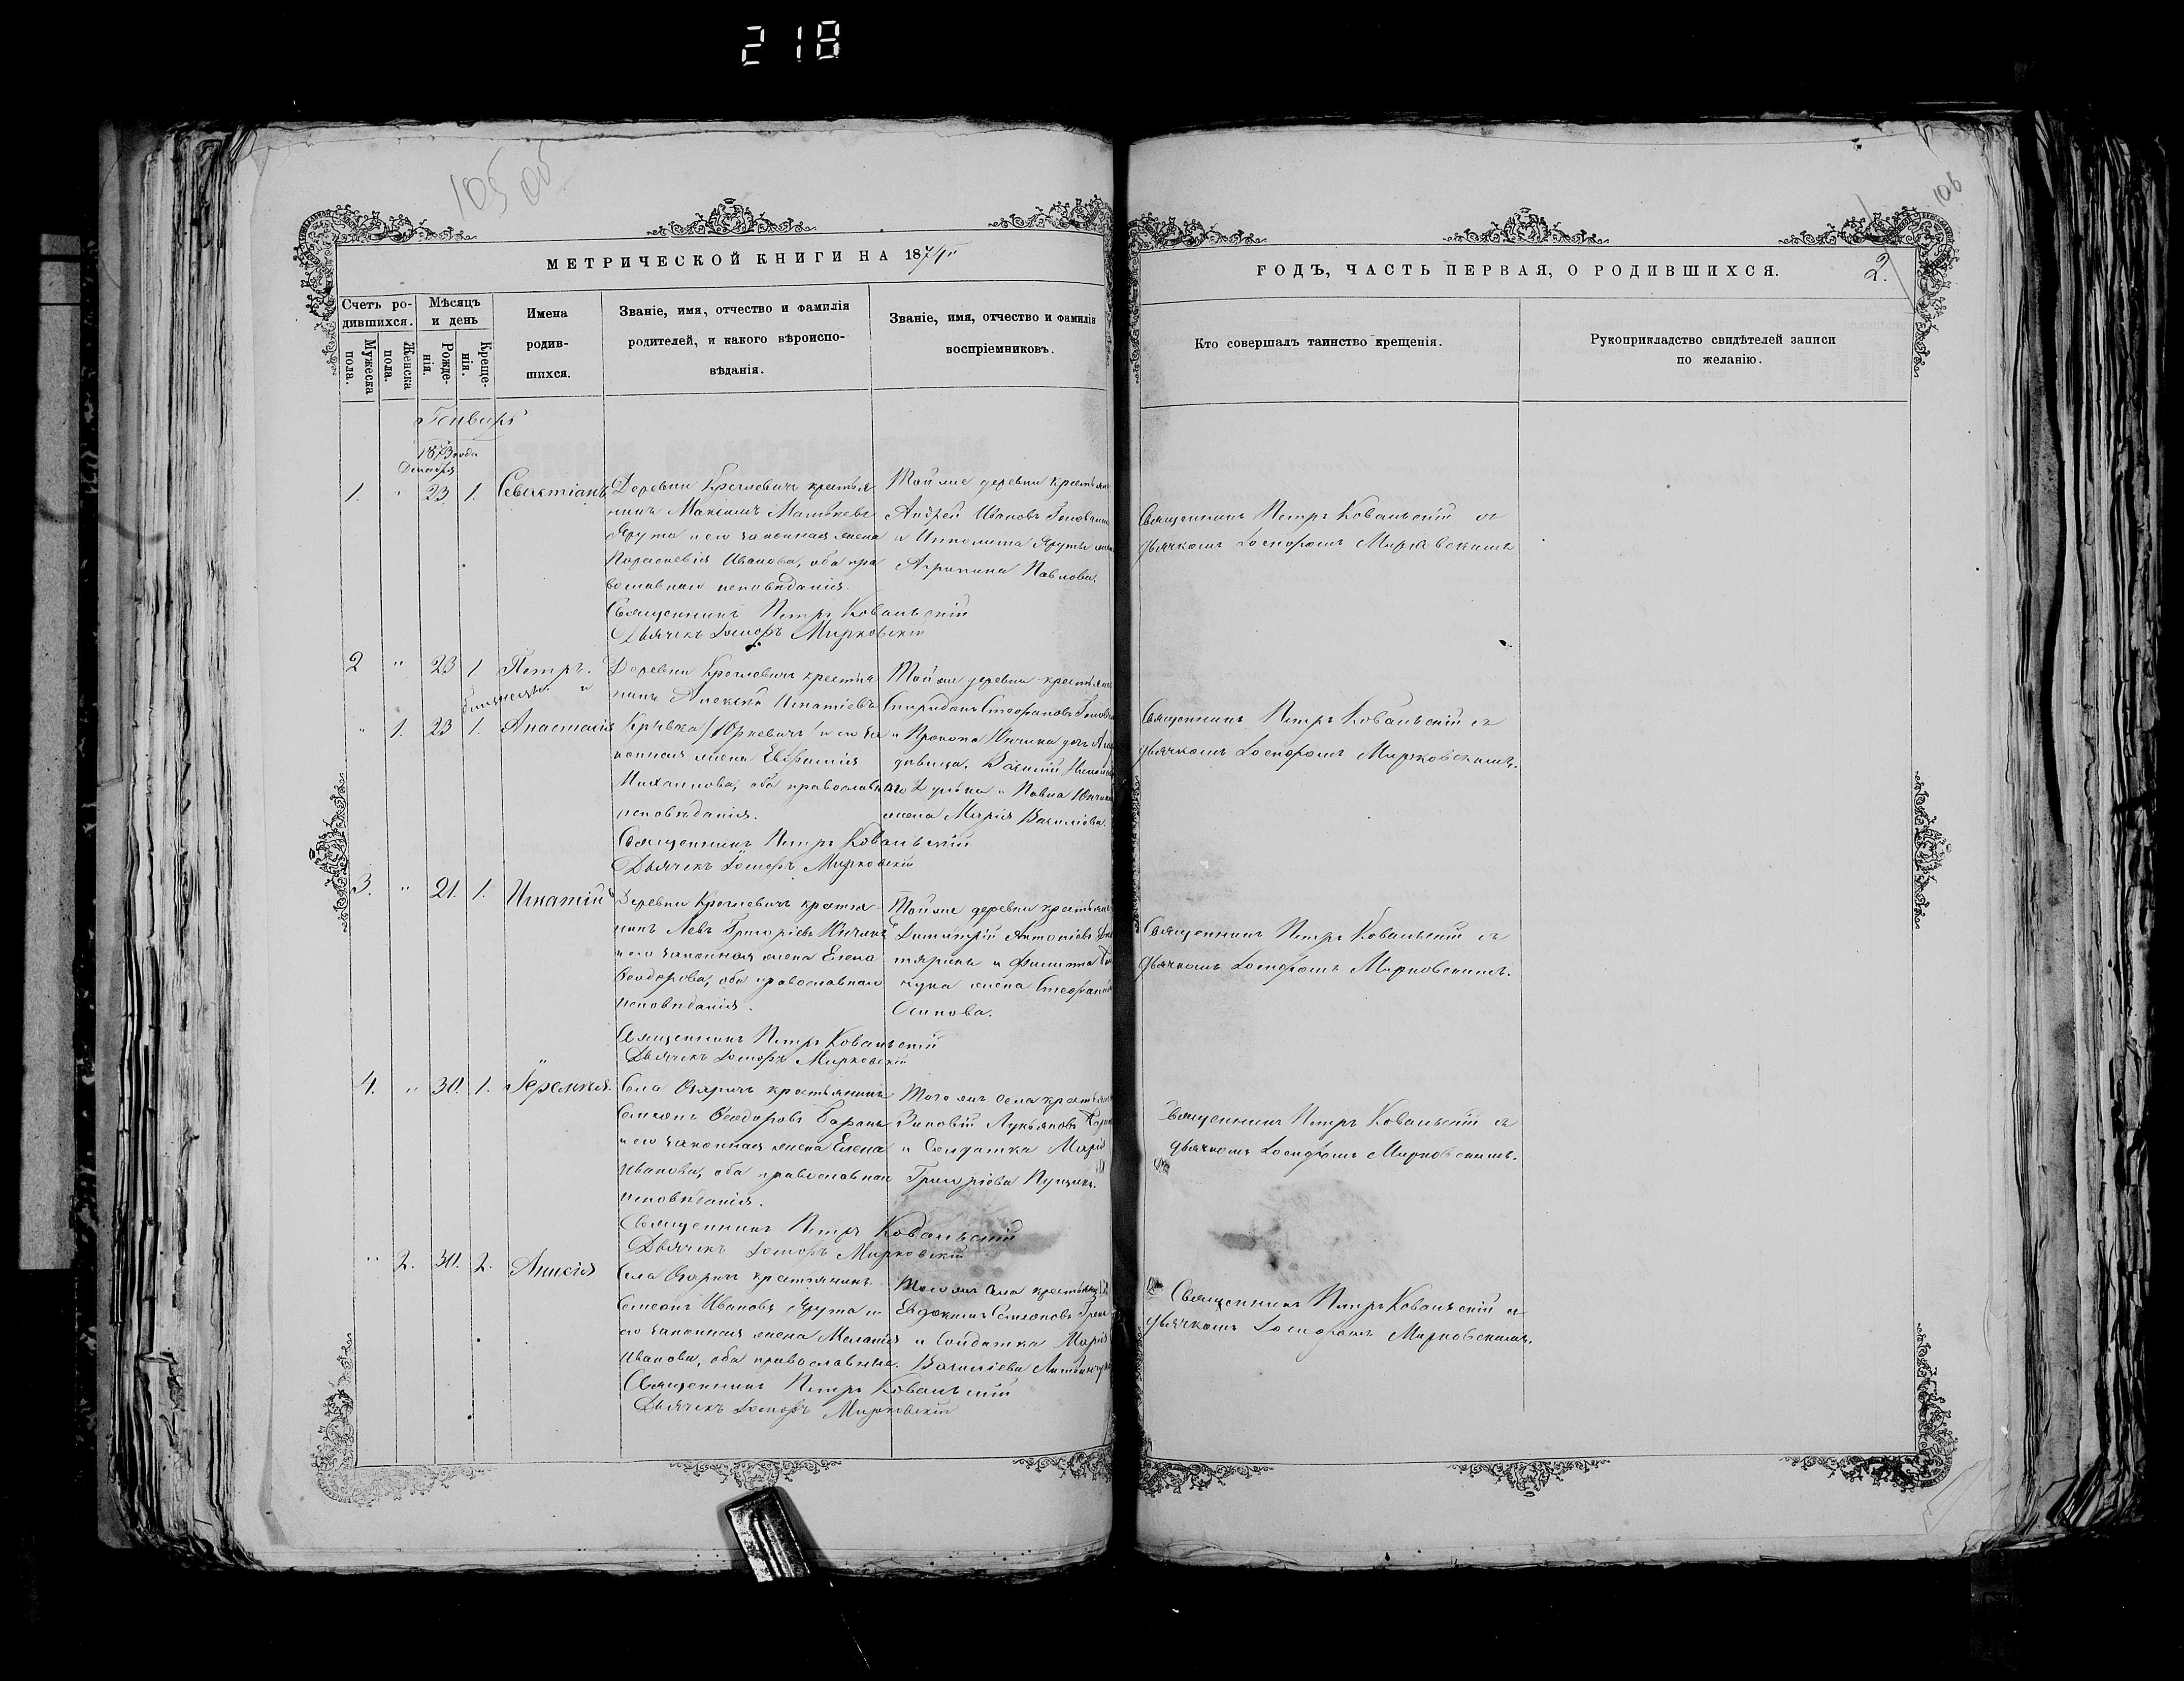 218
105 об
106
МЕТРИЧЕСКОЙ КНИГИ НА 1874"
ГОДЪ, ЧАСТЬ ПЕРВАЯ, О РОДИВШИХСЯ.
2.
Счетъ ро-
дившихся.
Мужеска
пола.
Женска
пола.
Мѣсяцъ
и день
Рожде-
нія.
Креще-
нія.
Имена
родив-
шихся.
Званіе, имя, отчество и фамилія
родителей, и какого вѣроиспо-
вѣданія.
Званіе, имя, отчество и фамилія
воспріемниковъ.
Кто совершалъ таинство крещенія.
Рукоприкладство свидѣтелей записи
по желанію.
Генварь
1873 года
Декабря
1. " 23 1. Севастіанъ
Деревни крестья
нинъ Максимъ
Ярута и его законная жена
Параскевія Иванова, оба пра
вославнаго исповѣданія.
Священникъ Петръ Ковальскій
Дьячекъ Мирковскій
Той же деревни крестьян
Андрей Ивановъ
и Ипполита Яруты
Агрипина Павлова.
Священникъ Петръ Ковальскій съ
дьячкомъ Мирковскимъ
2 " 23 1 Петръ.
близнецы и
" 1. 23 1. Анастасія
Деревни крестья
нинъ Алексѣй Игнатіевъ
/Юркевичъ/ и его за
конная жена Евфимія
Михаилова, оба православнаго
исповѣданія.
Священникъ Петръ Ковальскій
Дьячекъ Мирковскій
Той же деревни крестьян
Спиридонъ Стефановъ
и Прокопа дочь
дѣвица. Василій
и Павла
жена Марія Василіева.
Священникъ Петръ Ковальскій съ
дьячкомъ Мирковскимъ.
3. " 21. 1. Игнатій
Деревни крестья
нинъ Левъ Григоріевъ
и его законная жена Елена
Ѳеодорова, оба православнаго
исповѣданія.
Священникъ Петръ Ковальскій
Дьячекъ Мирковскій
Той же деревни крестьян
Димитрій Антоніевъ
и Филиппа
жена
Осипова.
Священникъ Петръ Ковальскій съ
дьячкомъ Мирковскимъ.
4. " 30. 1. Іеремія.
Села крестьянинъ
Симеонъ Ѳеодоровъ Баранъ
и его законная жена Елена
Иванова, оба православнаго
исповѣданія.
Священникъ Петръ Ковальскій
Дьячекъ Мирковскій
Того же села крестьян
Зиновій Лукьяновъ
и Солдатка Марія
Григоріева
Священникъ Петръ Ковальскій съ
дьячкомъ Мирковскимъ.
" 2. 30. 2. Анисія
Села крестьянинъ
Симеонъ Ивановъ Ярута и
его законная жена Меланія
Иванова, оба православные.
Священникъ Петръ Ковальскій
Дьячекъ Мирковскій
Того же села крестьян
Евдокимъ Симеоновъ
и Солдатка Марія
Василіева
Священникъ Петръ Ковальскій съ
дьячкомъ Мирковскимъ.